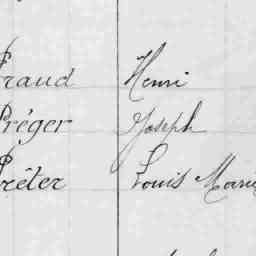 Praud Henri
Préger Joseph
Prêter Louis Marie